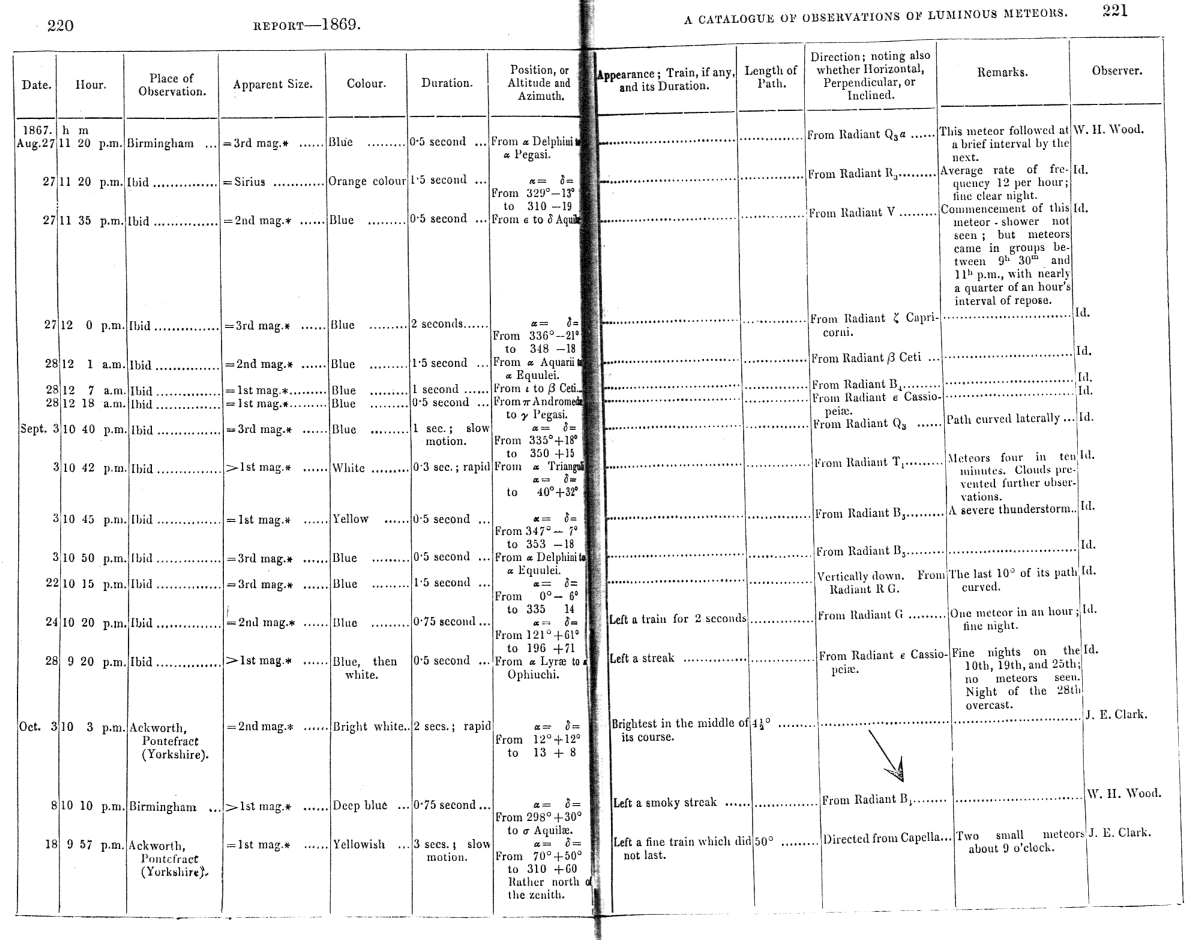 220 REPORT—1869.
A CATALOGUE OF OBSERVATIONS OF LUMINOUS METEORS. 221
Date. Hour. Place of Observation. Apparent Size. Colour. Duration. Position, or Altitude and Azimuth. Appearance; Train, if any, and its Duration. Length of Path. Direction; noting also whether Horizontal, Perpendicular, or Inclined. Remarks. Observer.
1867. h m
Aug.27 11 20 p.m. Birmingham ... =3rd mag.* ...... Blue ......... 0·5 second ... From α Delphini to From Radiant Q₃a ...... This meteor followed at W. H. Wood.
α Pegasi. a brief interval by the
next.
27 11 20 p.m. Ibid .............. =Sirius ............ Orange colour 1·5 second ... α= δ= From Radiant R₃......... Average rate of fre- Id.
From 329°−13° quency 12 per hour;
to 310 −19 fine clear night.
27 11 35 p.m. Ibid .............. =2nd mag.* ...... Blue ......... 0·5 second ... From ε to δ Aquilæ From Radiant V ......... Commencement of this Id.
meteor-shower not
seen; but meteors
came in groups be-
tween 9ʰ 30ᵐ and
11ʰ p.m., with nearly
a quarter of an hour's
interval of repose.
27 12 0 p.m. Ibid .............. =3rd mag.* ...... Blue ......... 2 seconds...... α= δ= From Radiant ζ Capri- Id.
From 336°−21° corni.
to 348 −18
28 12 1 a.m. Ibid .............. =2nd mag.* ...... Blue ......... 1·5 second ... From α Aquarii to From Radiant β Ceti ... Id.
α Equulei.
28 12 7 a.m. Ibid .............. =1st mag.*......... Blue ......... 1 second ...... From ι to β Ceti... From Radiant B₄......... Id.
28 12 18 a.m. Ibid .............. =1st mag.*......... Blue ......... 0·5 second ... From π Andromedæ From Radiant ε Cassio- Id.
to γ Pegasi. peiæ.
Sept. 3 10 40 p.m. Ibid .............. =3rd mag.* ...... Blue ......... 1 sec.; slow α= δ= From Radiant Q₃ ...... Path curved laterally ... Id.
motion. From 335°+18°
to 350 +15
3 10 42 p.m. Ibid .............. >1st mag.* ...... White ......... 0·3 sec.; rapid From α Trianguli From Radiant T₁......... Meteors four in ten Id.
α= δ= minutes. Clouds pre-
to 40°+32° vented further obser-
vations.
3 10 45 p.m. Ibid .............. =1st mag.* ...... Yellow ...... 0·5 second ... α= δ= From Radiant B₃......... A severe thunderstorm.. Id.
From 347°− 7°
to 353 −18
3 10 50 p.m. Ibid .............. =3rd mag.* ...... Blue ......... 0·5 second ... From α Delphini to From Radiant B₅......... Id.
α Equulei.
22 10 15 p.m. Ibid .............. =3rd mag.* ...... Blue ......... 1·5 second ... α= δ= Vertically down. From The last 10° of its path Id.
From 0°− 6° Radiant R G. curved.
to 335 14
24 10 20 p.m. Ibid .............. =2nd mag.* ...... Blue ......... 0·75 second ... α= δ= Left a train for 2 seconds From Radiant G ......... One meteor in an hour; Id.
From 121°+61° fine night.
to 196 +71
28 9 20 p.m. Ibid .............. >1st mag.* ...... Blue, then 0·5 second ... From α Lyræ to Left a streak From Radiant ε Cassio- Fine nights on the Id.
white. Ophiuchi. peiæ. 10th, 19th, and 25th;
no meteors seen.
Night of the 28th
overcast.
Oct. 3 10 3 p.m. Ackworth, =2nd mag.* ...... Bright white.. 2 secs.; rapid α= δ= Brightest in the middle of 4½° ......... J. E. Clark.
Pontefract From 12°+12° its course.
(Yorkshire). to 13 + 8
8 10 10 p.m. Birmingham ... >1st mag.* ...... Deep blue ... 0·75 second ... α= δ= Left a smoky streak ...... From Radiant B₁......... W. H. Wood.
From 298°+30°
to σ Aquilæ.
18 9 57 p.m. Ackworth, =1st mag.* ...... Yellowish ... 3 secs.; slow α= δ= Left a fine train which did 50° ......... Directed from Capella... Two small meteors J. E. Clark.
Pontefract motion. From 70°+50° not last. about 9 o'clock.
(Yorkshire). to 310 +60
Rather north of
the zenith.